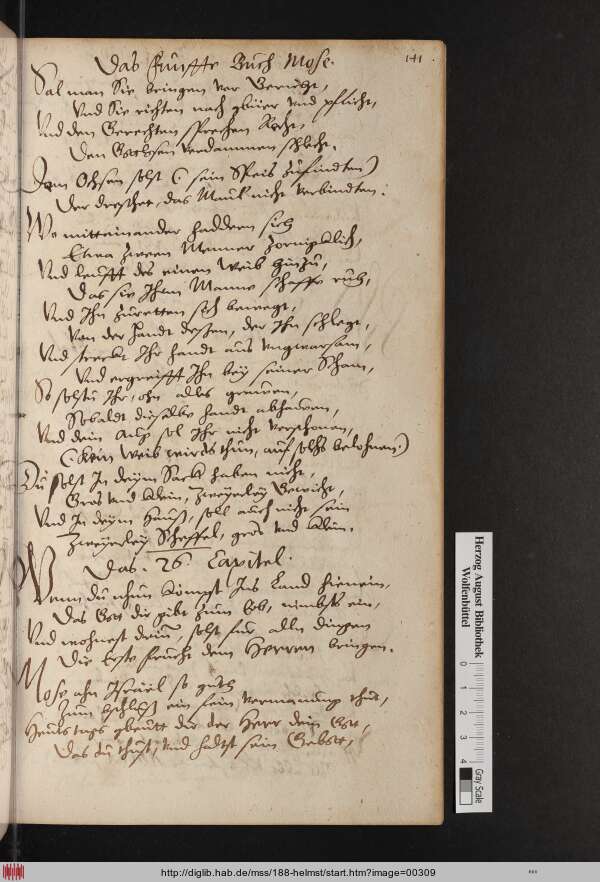 Das Fünffte Buch Mose.
141.
Sal man Sie bringen vor Gericht,
Und Sie richten nach und pflicht,
Und den Gerechten sprechen Recht,
Den Gottlosen verdammen schlecht.
Dem Ochsen solst (sein Speis zufindten)
Der dreschet, das Maul nicht verbindten.
Wo mitteinander haddern sich
Etwa zween Menner zorniglich,
Und leufft des einen Weib hinzu,
Das sie Ihrm Manne schaffe ruh,
Und Ihn zuretten sich beweget,
Von der Handt dessen, der Ihn schlegt,
Und streckt Ihr handt aus ungewarsam,
Und ergreifft Ihn bey seiner Scham,
So solstu Ihr, ohn alles grawen,
Sobaldt dieselbe handt abhawen,
Und dein Aug sol Ihr nicht verschonen,
(Kein Weib wirds thun, auf solchs belohnen.)
Du solst In deim Sack haben nicht,
Gros und klein, zweyerley Gewicht,
Und In deim Hauß, soll auch nicht sein
Zweyerley Scheffel, gros und klein.
Das .26. Capitel.
Wenn du nhun kömpst Ins Land hienein,
Das Gott dir gibt zum Erb, nimbst ein,
Und wohnest drin, solst für allen dingen
Die Erste frucht dem Herren bringen.
Mose ahn Israel so guth
Zum beschluß ein fein vermanung thut,
Heuts tags gbeutt dir der Herr dein Gott,
Das du thust, und haltst sein Gebott,
Herzog August Bibliothek
Wolfenbüttel
0 1 2 3 4
Gray Scale
http://diglib.hab.de/mss/188-helmst/start.htm?image=00309